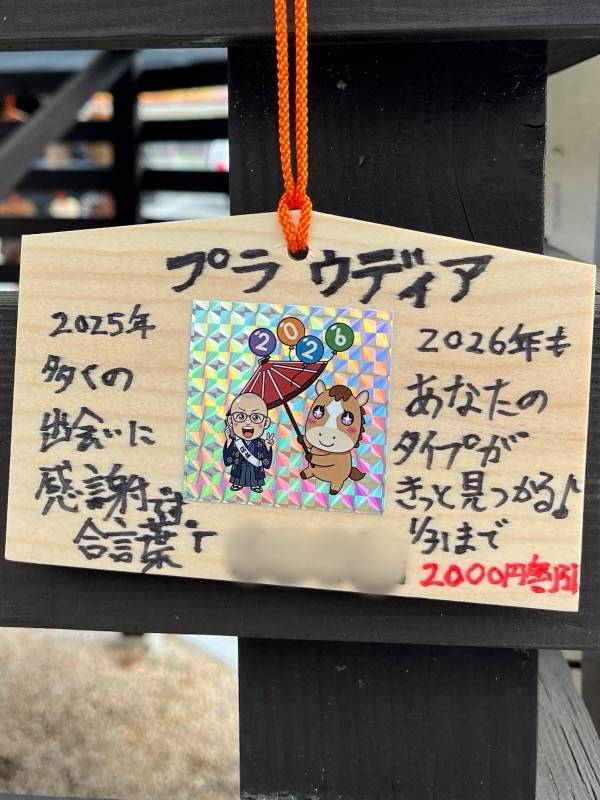 プラウディア
2025年
多くの
出会いに
感謝
合言葉
2026
2026年も
あなたの
タイプが
きっと見つかる♪
1/31まで
2000円割引